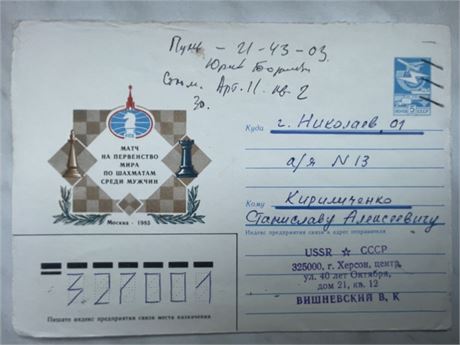 Пуж - 21-43-03
Юрий
Арт. 11. кв. 2
30.
5
МАТЧ
НА ПЕРВЕНСТВО
МИРА
ПО ШАХМАТАМ
СРЕДИ МУЖЧИН
Москва - 1985
Куда г. Николаев, 01
а/я N 13
Кому Кириличенко
Станиславу Алексеевичу
Индекс предприятия связи и адрес отправителя
USSR ☆ СССР
325000, г. Херсон, центр,
ул. 40 лет Октября,
дом 21, кв. 12
ВИШНЕВСКИЙ В, К
327001
Пишите индекс предприятия связи места назначения